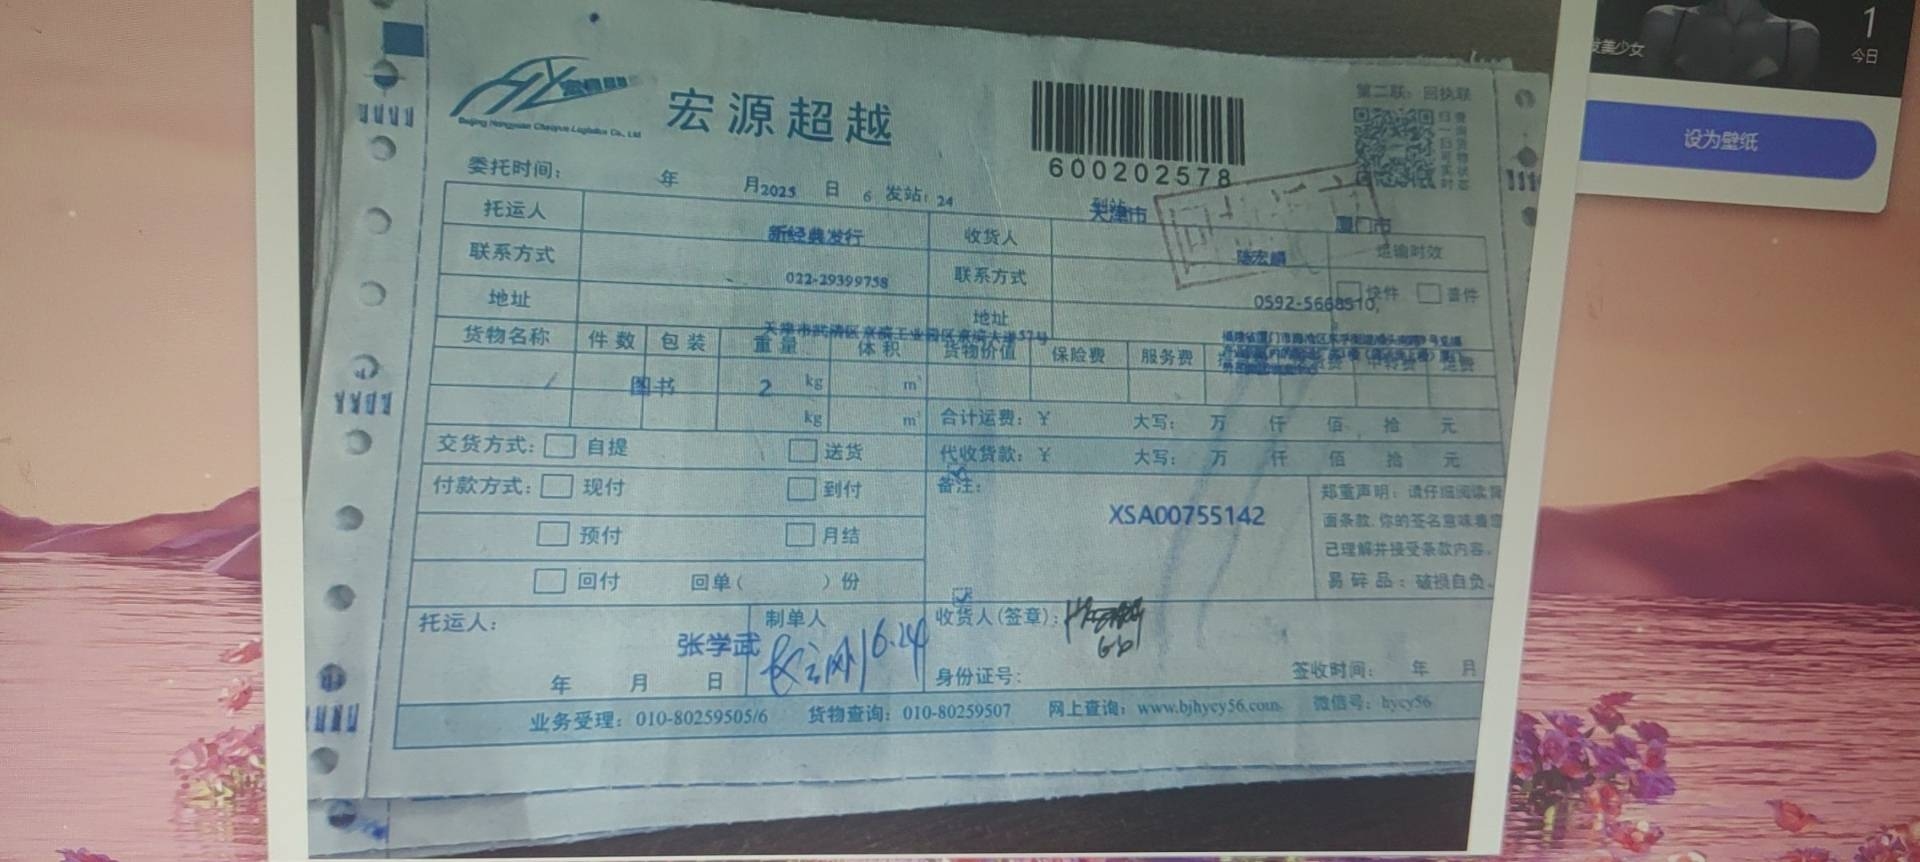 美少女
1
今日
设为壁纸
宏源超越
Beijing Hongyuan Chaoyue Logistics Co., Ltd
第二联：回执联
600202578
委托时间： 年 月2025 日 6 发站：24
天津市
厦门市
托运人 新经典发行 收货人
运输时效
联系方式 022-29399758 联系方式 0592-5668510,
快件 普件
地址 天津市武清区京滨工业园区京滨大道57号 地址
货物名称 件数 包装 重量 体积 货物价值 保险费 服务费 中转费
图书 2 kg m³
kg m³
合计运费：￥ 大写： 万 仟 佰 拾 元
交货方式： 自提 送货
代收货款：￥ 大写： 万 仟 佰 拾 元
付款方式： 现付 到付
预付 月结
回付 回单（ ）份
备注：
XSA00755142
郑重声明：请仔细阅读背
面条款,你的签名意味着您
已理解并接受条款内容。
易碎品：破损自负。
托运人： 张学武
年 月 日
制单人
6.24
收货人(签章)：
身份证号：
签收时间： 年 月
业务受理：010-80259505/6 货物查询：010-80259507 网上查询：www.bjhycy56.com 微信号：hycy56